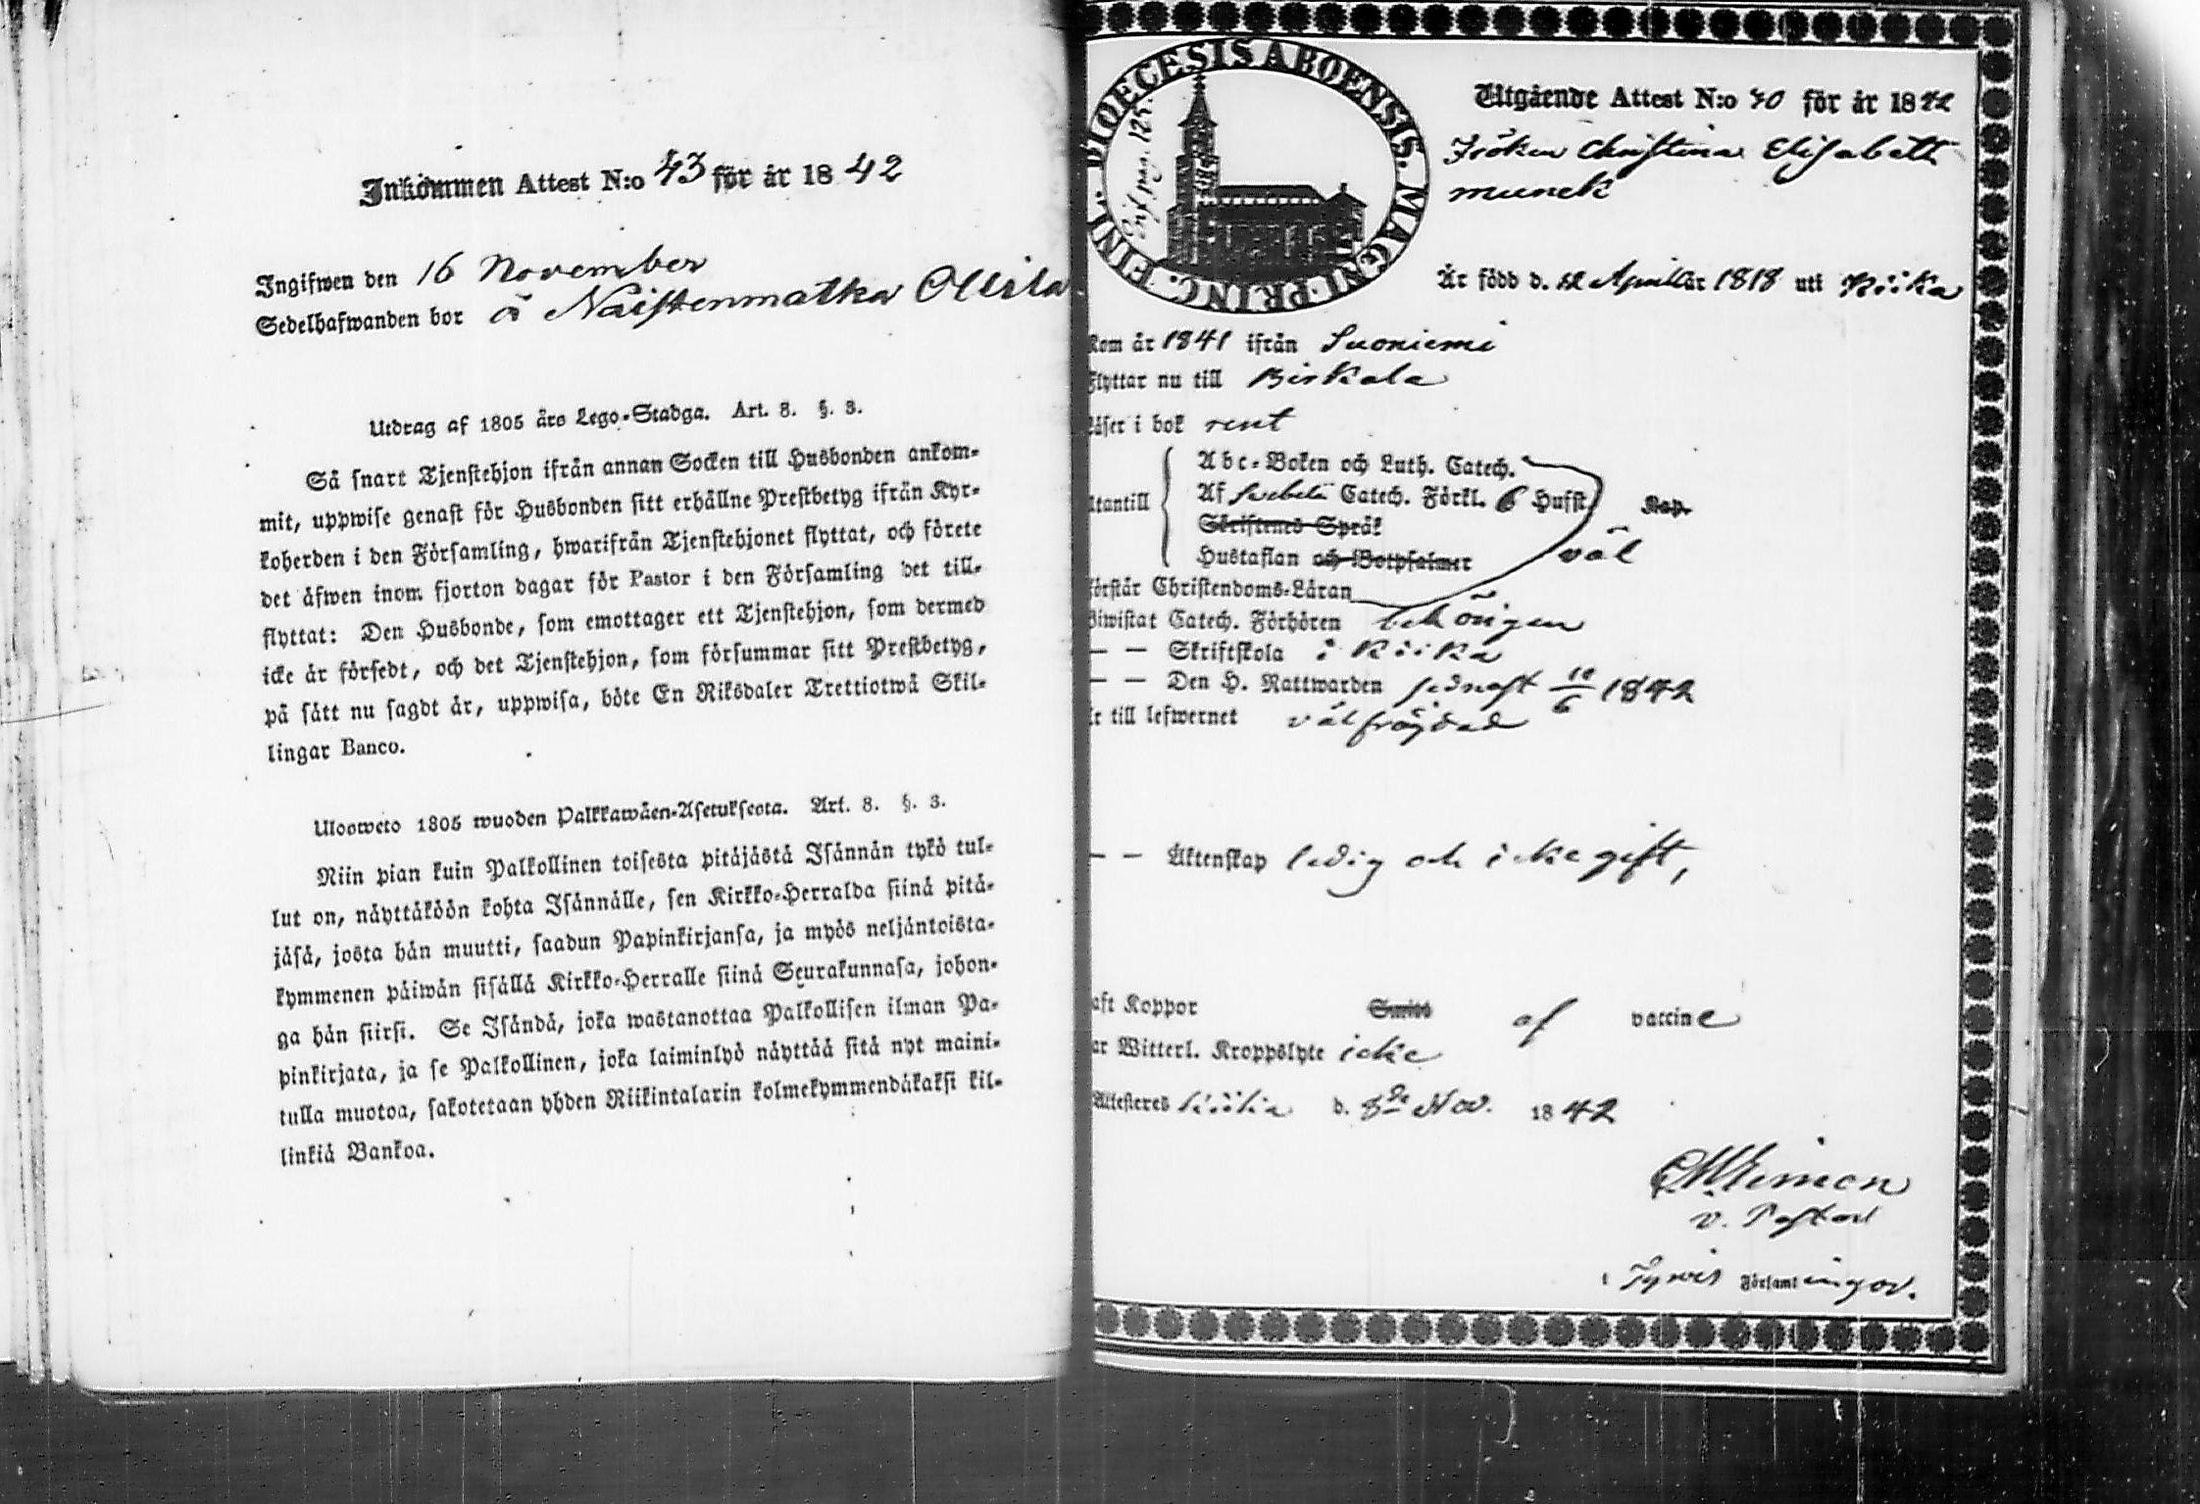 Inkommen Attest N:o 43 för år 1842
Ingifwen den 16 November
Sedelhafwanden bor å Naistenmatka Ollila
Utdrag af 1805 års Lego-Stadga. Art. 8. §. 3.
Så snart Tjenstehjon ifrån annan Socken till Husbonden ankom-
mit, uppwise genast för Husbonden sitt erhållne Prestbetyg ifrån Kyr-
koherden i den Församling, hwarifrån Tjenstehjonet flyttat, och förete
det äfwen inom fjorton dagar för Pastor i den Församling det till-
flyttat: Den Husbonde, som emottager ett Tjenstehjon, som dermed
icke är försedt, och det Tjenstehjon, som försummar sitt Prestbetyg,
på sätt nu sagdt är, uppwisa, böte En Riksdaler Trettiotwå Skil-
lingar Banco.
Ulosweto 1805 wuoden Palkkawäen-Asetuksesta. Art. 8. §. 3.
Niin pian kuin Palkollinen toisesta pitäjästä Isännän tykö tul-
lut on, näyttäköön kohta Isännälle, sen Kirkko-Herralda siinä pitä-
jäsä, josta hän muutti, saadun Papinkirjansa, ja myös neljäntoista-
kymmenen päiwän sisällä Kirkko-Herralle siinä Seurakunnasa, johon-
ga hän siirsi. Se Isändä, joka wastanottaa Palkollisen ilman Pa-
pinkirjata, ja se Palkollinen, joka laiminlyö näyttää sitä nyt maini-
tulla muotoa, sakotetaan yhden Riikintalarin kolmekymmendäkaksi kil-
linkiä Bankoa.
DIOECESIS ABOENSIS. MAGNI PRINC. FINL.
pag. 125.
Utgående Attest N:o 40 för år 1842
Fröken Christina Elisabeth
Munck
Är född d. 12 April år 1818 uti Kiika
Kom år 1841 ifrån Suoniemi
Flyttar nu till Birkala
Läser i bok rent
Utantill
Abc-Boken och Luth. Catech.
Af Swebelii Catech. Förkl. 6 Hufst. Kap.
Skriftenes Språk
Hustaflan och Botpsalmer väl
Förstår Christendoms-Läran
Biwistat Catech. Förhören behörigen
— — Skriftskola i Kiika
— — Den H. Nattwarden sednast 10/6 1842
Är till lefwernet välfrägdad
— — Äktenskap ledig och icke gift,
aft Koppor Smitt af vaccine
ar Witterl. Kroppslyte icke
Attesteras Kiika d. 8de Nov. 1842
v. Pastor
i Tyrvis Församlingar.